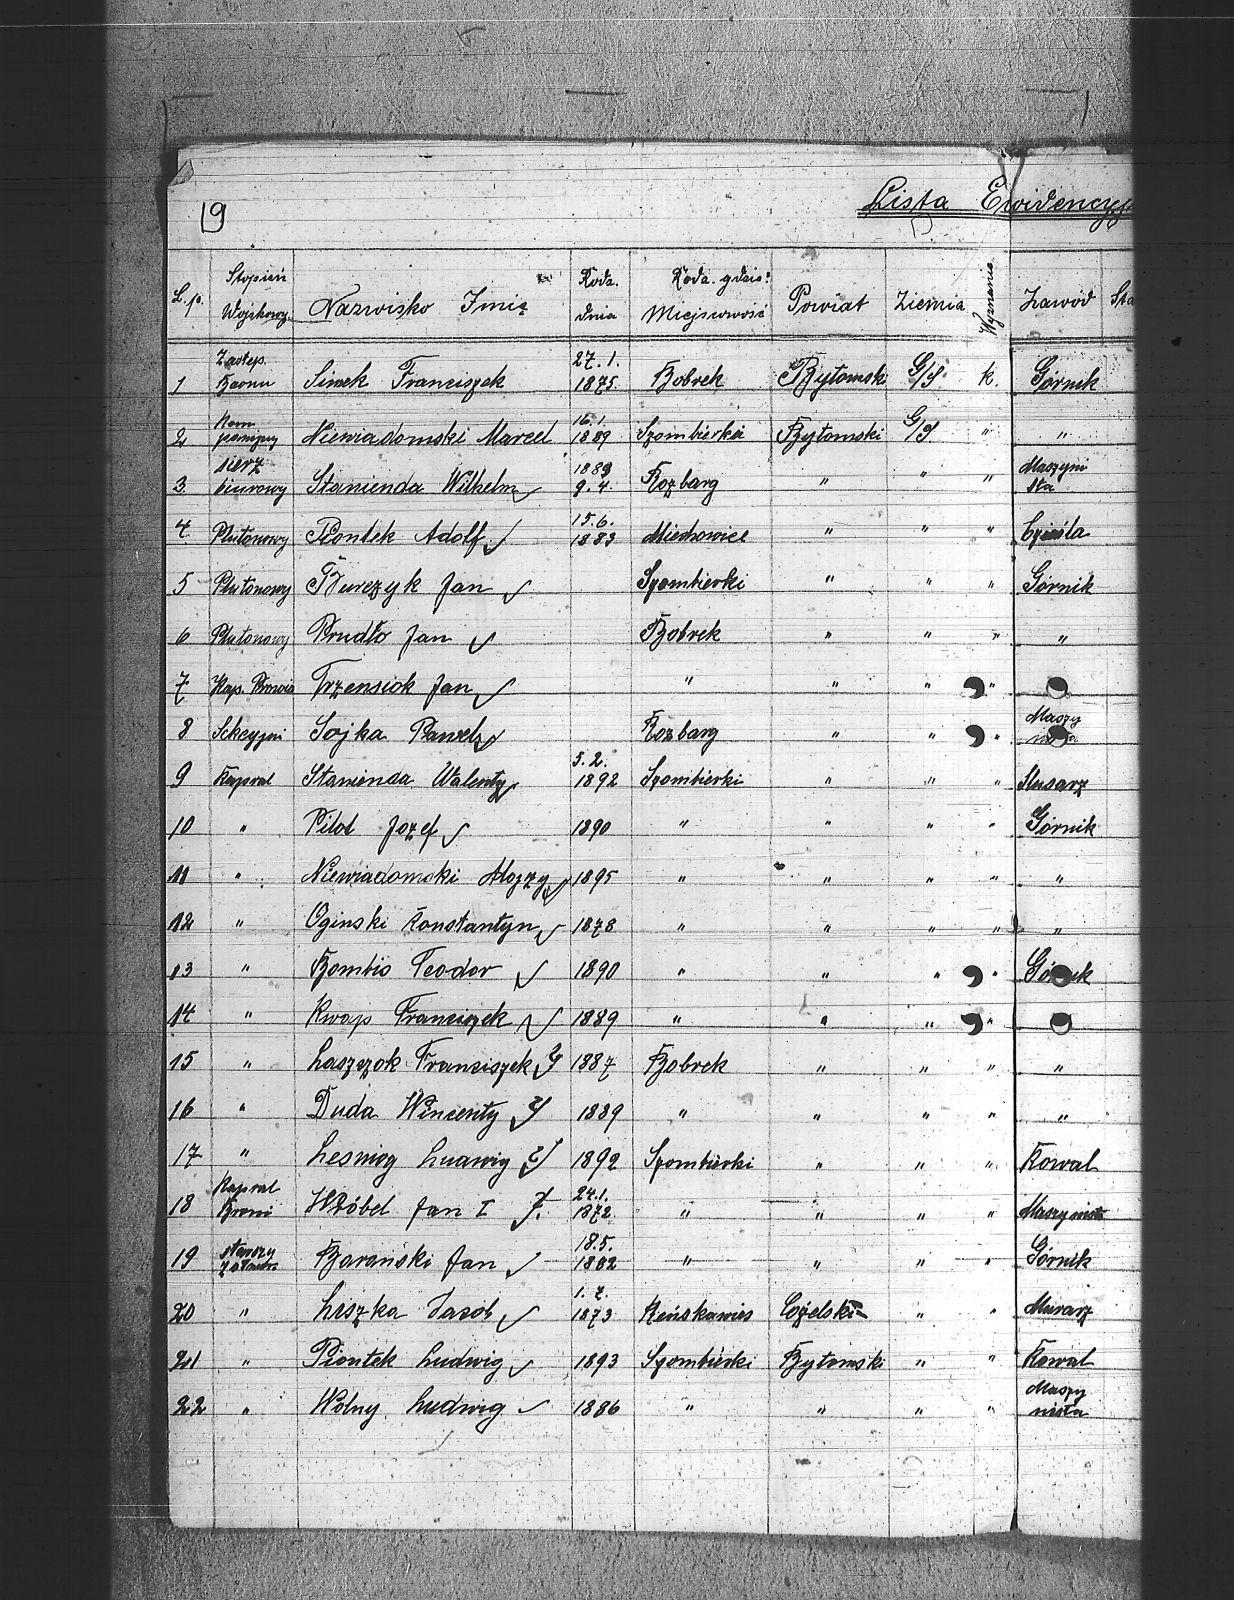 19
Lista Ewidencyj
L.p. Stopień Wojskowy Nazwisko Imię Rodz. dnia Rodz. gdzie? Miejscowość Powiat Ziemia Wyznanie Zawód Sta
1 Zastęp. Baonu Sinek Franciszek 27.1. 1875 Bobrek Bytomski G/S k. Górnik
2 Kom panijny Niewiadomski Marcel 16.1. 1889 Szombierki Bytomski G/S " "
3. sierż biurowy Stanienda Wilhelm 1889 9.4. Rozbarg " " " Maszyni sta
4 Plutonowy Piontek Adolf 15.6. 1883 Miechowice " " " Cieśla
5 Plutonowy Burczyk Jan Szombierki " " " Górnik
6 Plutonowy Prudło Jan Bobrek " " " "
7 Kap. Trzensiok Jan " " " "
8 Sekcyjni Sojka Pawel Rozbarg " " " Maszy
9 Kapral Stanienda Walenty 5.2. 1892 Szombierki " " " Slusarz
10 " Pilot Jozef 1890 " " " " Górnik
11 " Niewiadomski Alojzy 1895 " " " " "
12 " Oginski Konstantyn 1878 " " " " "
13 " Bombis Teodor 1890 " " " " Górnik
14 " Kwap Franciszek 1889 " " " "
15 " Laszczok Franciszek 1887 Bobrek " " " "
16 " Duda Wincenty 1889 " " " " "
17 " Lesniog Ludwig 1892 Szombierki " " " Kowal
18 Kapral Broni Wróbel Jan I 24.1. 1872 " " " " Maszynista
19 starszy Barański Jan 18.5. 1882 " " " " Górnik
20 " Liszka Jacob 1.7. 1873 Reńskawies Cozelski " " Murarz
21 " Piontek Ludwig 1893 Szombierki Bytomski " " Kowal
22 " Wolny Ludwig 1886 " " " " Maszy nista